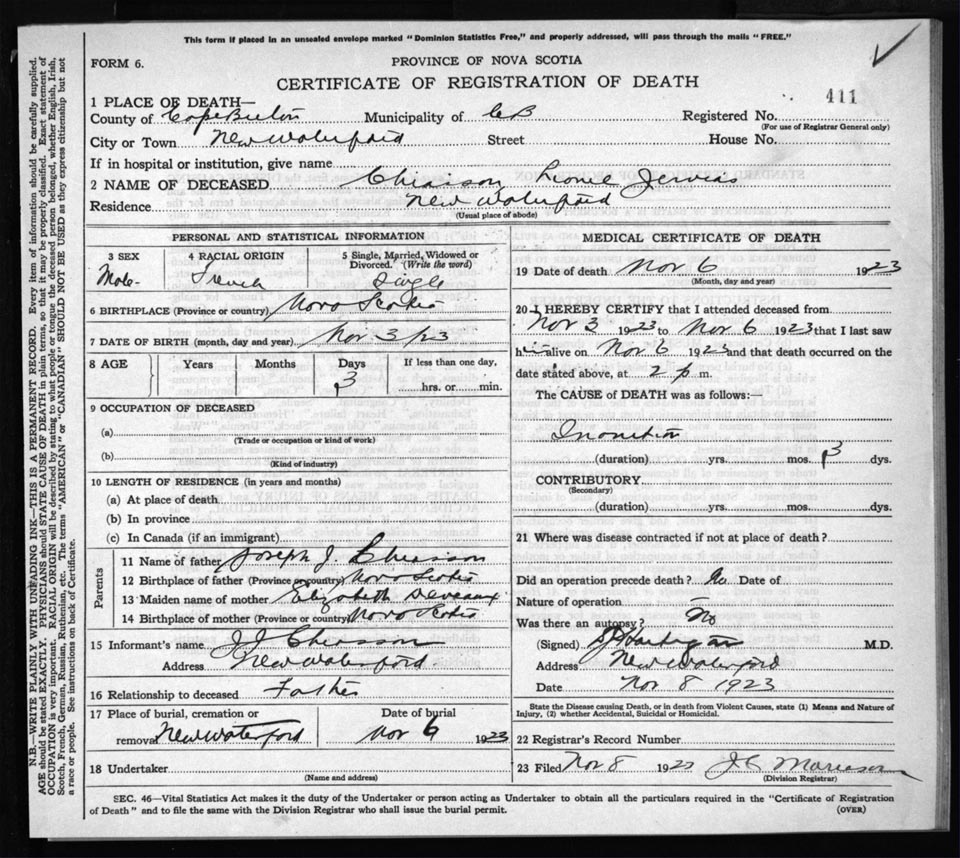 This form if placed in an unsealed envelope marked "Dominion Statistics Free," and properly addressed, will pass through the mails "FREE."
FORM 6.
PROVINCE OF NOVA SCOTIA
CERTIFICATE OF REGISTRATION OF DEATH
411
1 PLACE OF DEATH—
County of Cape Breton Municipality of CB Registered No.
(For use of Registrar General only)
City or Town New Waterford Street House No.
If in hospital or institution, give name
2 NAME OF DECEASED Chiasson
Residence New Waterford
(Usual place of abode)
PERSONAL AND STATISTICAL INFORMATION
3 SEX 4 RACIAL ORIGIN 5 Single, Married, Widowed or Divorced. (Write the word)
Male French Single
6 BIRTHPLACE (Province or country) Nova Scotia
7 DATE OF BIRTH (month, day and year) Nov 3/23
8 AGE Years Months Days If less than one day,
3 hrs. or min.
9 OCCUPATION OF DECEASED
(a)
(Trade or occupation or kind of work)
(b)
(Kind of industry)
10 LENGTH OF RESIDENCE (in years and months)
(a) At place of death
(b) In province
(c) In Canada (if an immigrant)
Parents
11 Name of father Joseph J. Chiasson
12 Birthplace of father (Province or country) Nova Scotia
13 Maiden name of mother Elizabeth Deveaux
14 Birthplace of mother (Province or country) Nova Scotia
15 Informant's name J J Chiasson
Address New Waterford
16 Relationship to deceased Father
17 Place of burial, cremation or removal New Waterford
Date of burial Nov 6 1923
18 Undertaker
(Name and address)
MEDICAL CERTIFICATE OF DEATH
19 Date of death Nov 6 1923
(Month, day and year)
20 I HEREBY CERTIFY that I attended deceased from
Nov 3 1923 to Nov 6 1923 that I last saw
him alive on Nov 6 1923 and that death occurred on the
date stated above, at 2 p m.
The CAUSE of DEATH was as follows:—
Inanition
(duration) yrs. mos. 3 dys.
CONTRIBUTORY
(Secondary)
(duration) yrs. mos. dys.
21 Where was disease contracted if not at place of death?
Did an operation precede death? No Date of
Nature of operation —
Was there an autopsy? No
(Signed) M.D.
Address New Waterford
Date Nov 8 1923
State the Disease causing Death, or in death from Violent Causes, state (1) Means and Nature of Injury, (2) whether Accidental, Suicidal or Homicidal.
22 Registrar's Record Number
23 Filed Nov 8 1923
(Division Registrar)
SEC. 46—Vital Statistics Act makes it the duty of the Undertaker or person acting as Undertaker to obtain all the particulars required in the "Certificate of Registration
of Death" and to file the same with the Division Registrar who shall issue the burial permit. (OVER)
N.B.—WRITE PLAINLY WITH UNFADING INK—THIS IS A PERMANENT RECORD. Every item of information should be carefully supplied.
AGE should be stated EXACTLY. PHYSICIANS should STATE CAUSE OF DEATH in plain terms, so that it may be properly classified. Exact statement of
OCCUPATION is very important. RACIAL ORIGIN will be described by stating to what people or tongue the deceased person belonged, whether English, Irish,
Scotch, French, German, Russian, Ruthenian, etc. The terms "AMERICAN" or "CANADIAN" SHOULD NOT BE USED as they express citizenship but not
a race or people. See instructions on back of Certificate.